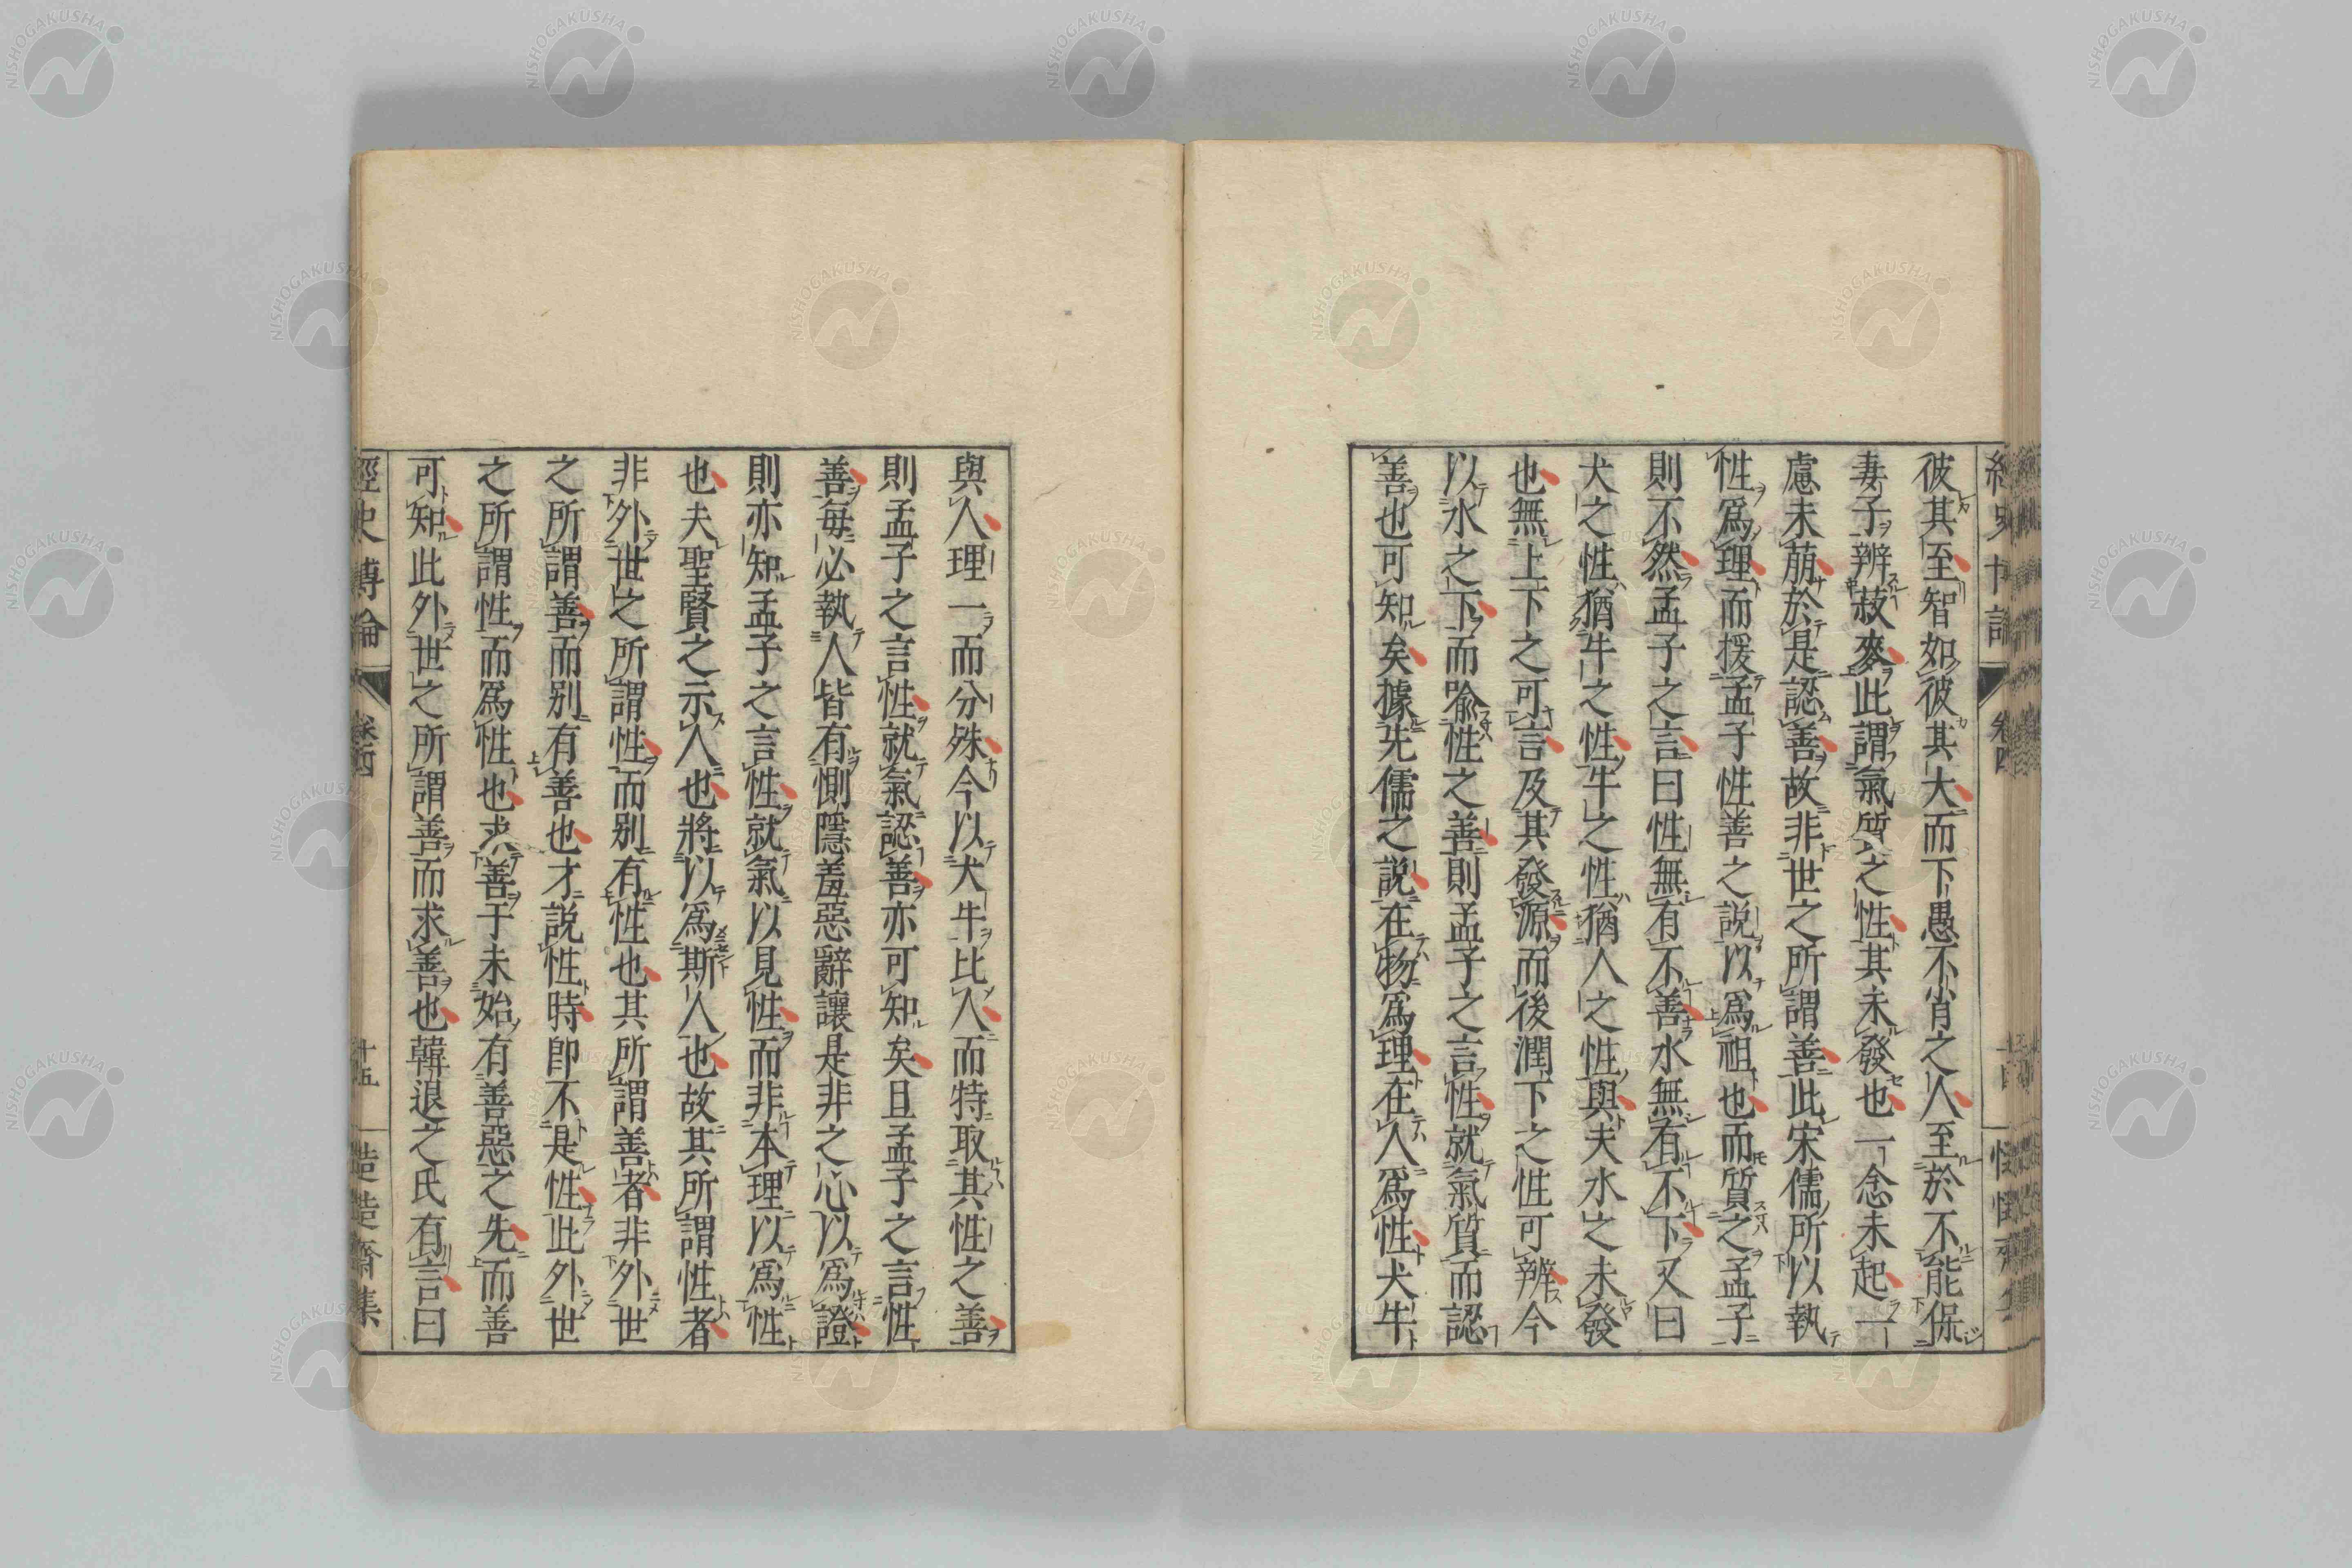 彼其至智如彼其大而下愚不肖之人至於不能保
妻子辨菽麥此謂氣質之性其未發也一念未起一
慮未萠於是認善故非世之所謂善此宋儒所以執
性爲理而援孟子性善之説以爲祖也而質之孟子
則不然孟子之言曰性無有不善水無有不下又曰
犬之性猶牛之性牛之性猶人之性與夫水之未發
也無上下之可言及其發源而後潤下之性可辨今
以水之下而喩性之善則孟子之言性就氣質而認
善也可知矣據先儒之説在物爲理在人爲性犬牛
與人理一而分殊今以犬牛比人而特取其性之善
則孟子之言性就氣認善亦可知矣且孟子之言性
善毎必執人皆有惻隱羞惡辭讓是非之心以爲證
則亦知孟子之言性就氣以見性而非本理以爲性
也夫聖賢之示人也將以爲斯人也故其所謂性者
非外世之所謂性而別有性也其所謂善者非外世
之所謂善而別有善也才説性時卽不是性此外世
之所謂性而爲性也求善于未始有善惡之先而善
可知此外世之所謂善而求善也韓退之氏有言曰
經史博論
卷四
十五
造造齋集